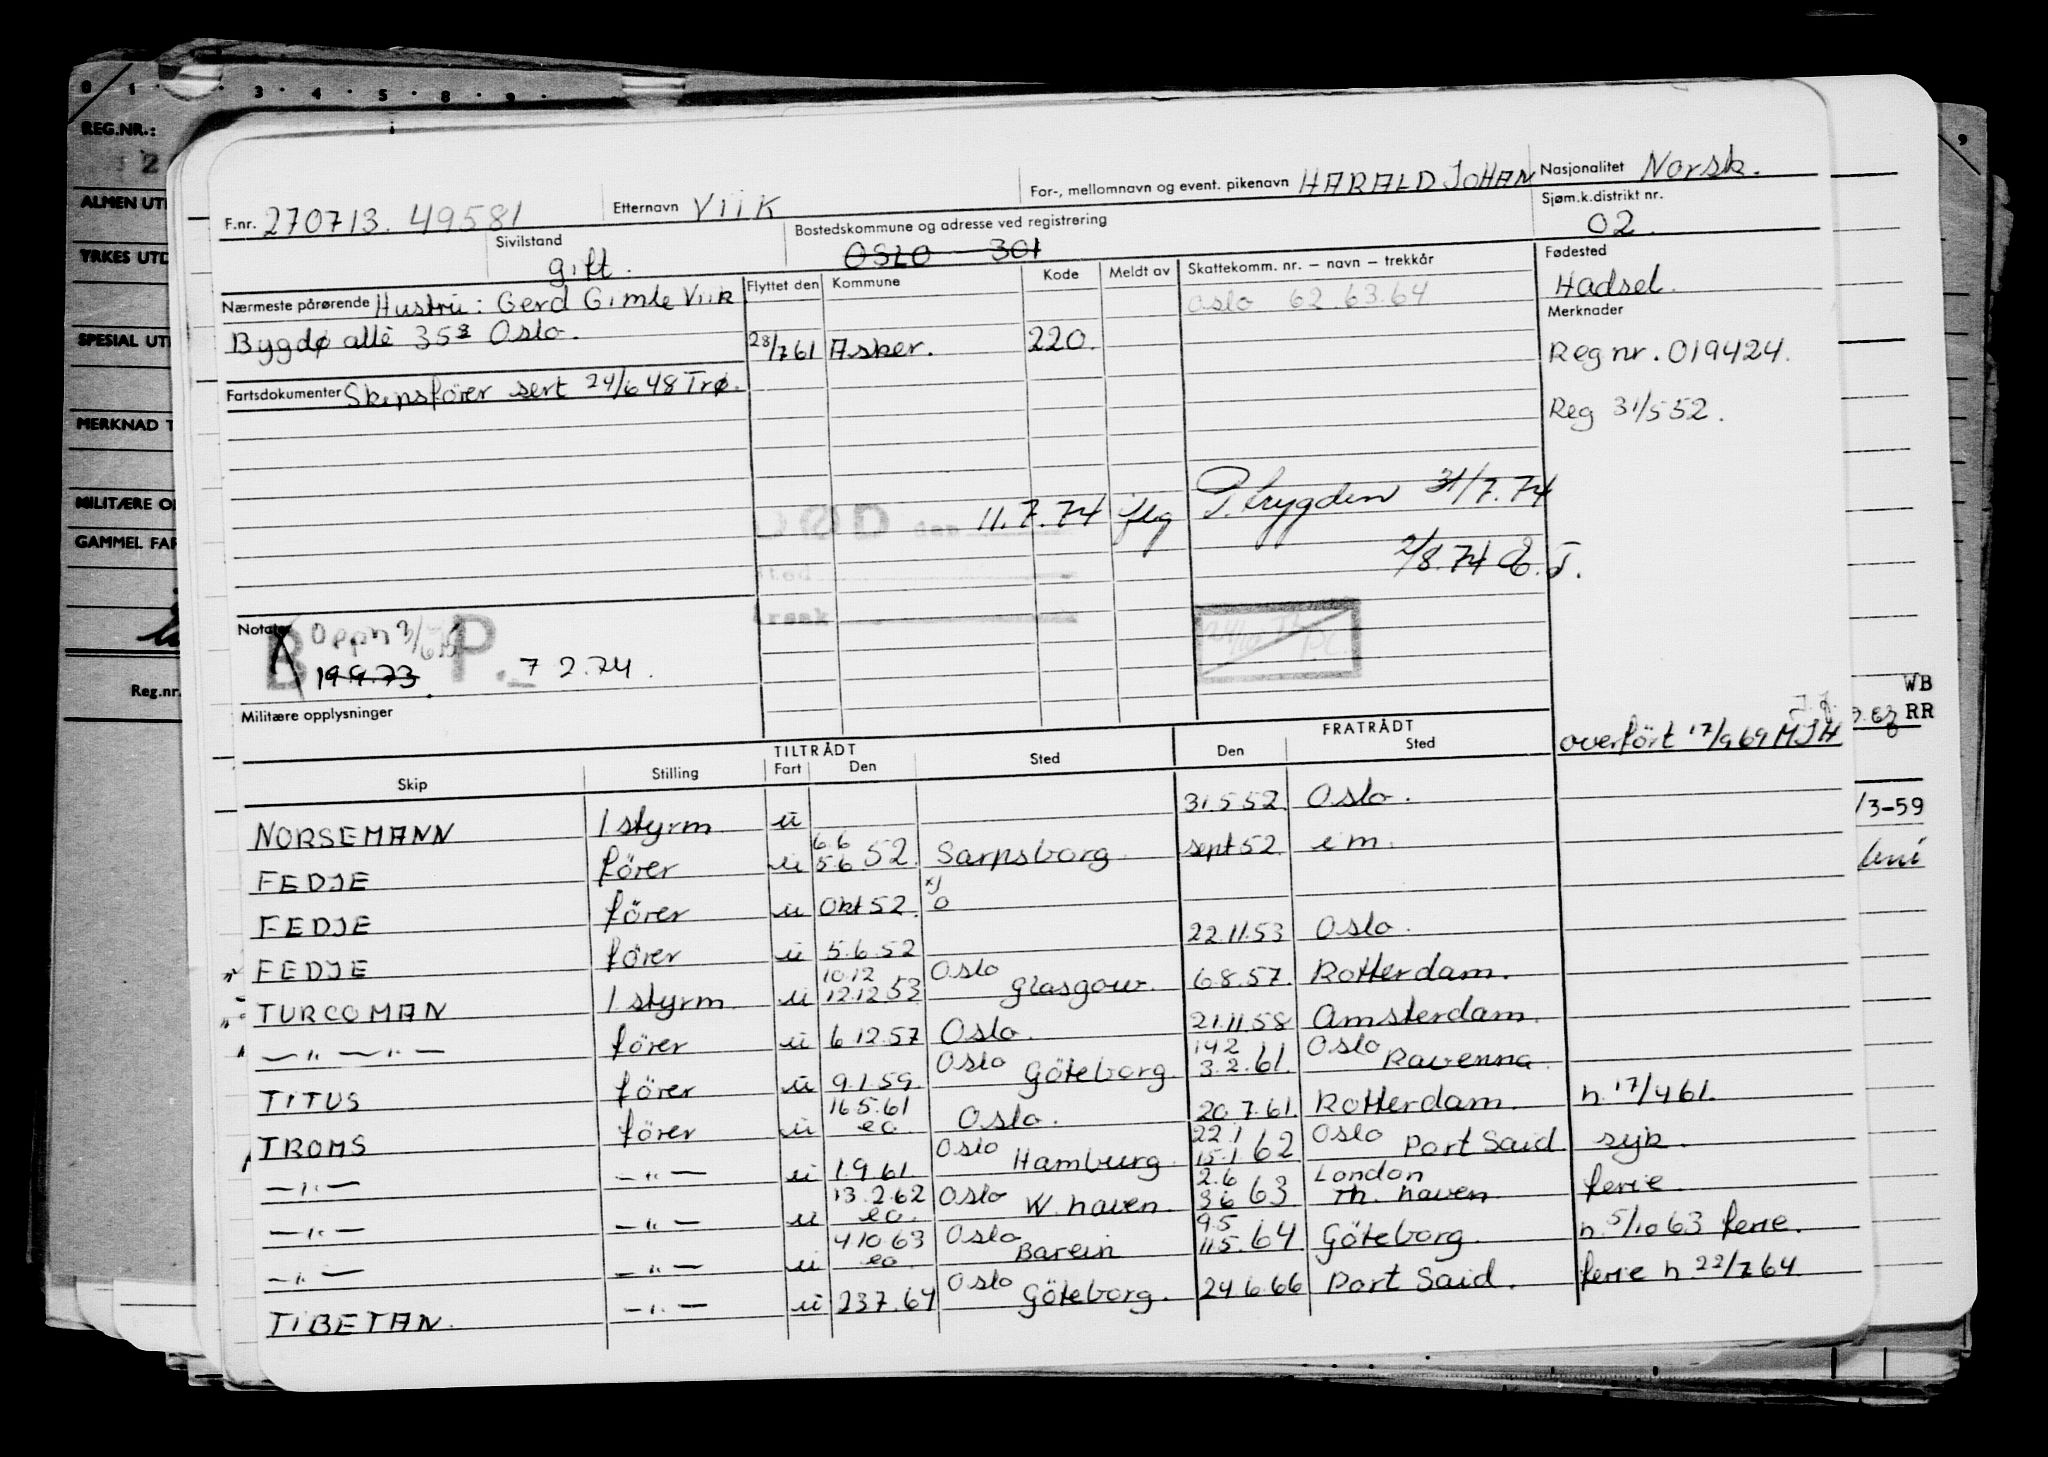 0 1 3 4 5 8 9
REG.NR.:
2
ALMEN UT
YRKES UTD
SPESIAL UT
MERKNAD T
MILITÆRE O
GAMMEL FAR
Reg.nr.
F.nr. 270713. 49581 Etternavn VIIK For-, mellomnavn og event. pikenavn HARALD JOHAN Nasjonalitet Norsk.
Sivilstand gift. Bostedskommune og adresse ved registrering OSLO 301 Sjøm.k.distrikt nr. 02.
Nærmeste pårørende Hustru: Gerd Gimle Viik Flyttet den Kommune Kode Meldt av Skattekomm. nr. – navn – trekkår Fødested Hadsel.
Oslo 62.63.64
Bygdø allè 35 Oslo. 28/7 61 Asker. 220. Merknader
Reg nr. 019424.
Fartsdokumenter Skipsförer sert 24/6 48 Trø.
Reg 31/5 52.
DØD den 11.7.74 flg P. trygden 31/7.74
2/8.74
sted
årsak
Notater Oppn 3/6
B P.
19.9.73. 7 2.74.
Militære opplysninger
WB
RR
overfört 17/9 69 MJH
TILTRÅDT FRATRÅDT
Skip Stilling Fart Den Sted Den Sted
NORSEMANN 1 styrm u 31.5 52 Oslo.
FEDJE förer u 6.6 5.6 52. Sarpsborg sept 52. i m.
FEDJE förer u Okt 52. x) o
FEDJE förer u 5.6.52 22.11.53 Oslo.
TURCOMAN 1 styrm. u 10.12 12.12.53 Oslo Glasgow. 6.8.57. Rotterdam.
—"—"— förer u 6.12.57 Oslo. 21.11.58 Amsterdam.
TITUS förer u 9.1.59. Oslo Göteborg 14 2 3.2.61. Oslo Ravenna
TROMS förer u 16.5.61 eo. Oslo. 20.7.61. Rotterdam. n. 17/4 61.
—"— —"— u 1.9.61. Oslo Hamburg. 22.1 15.1 62 Oslo Port Said syk.
—"— —"— u 13.2.62 eo. Oslo W. haven. 2.6 3 6 63 London Th. haven ferie.
—"— —"— u 4.10.63 eo. Oslo Barein 9.5 11.5.64 Göteborg. n. 5/10 63 ferie.
TIBETAN. —"— u 23.7.64 Oslo Göteborg. 24.6.66 Port Said. ferie n. 22/7 64.
/3-59
9